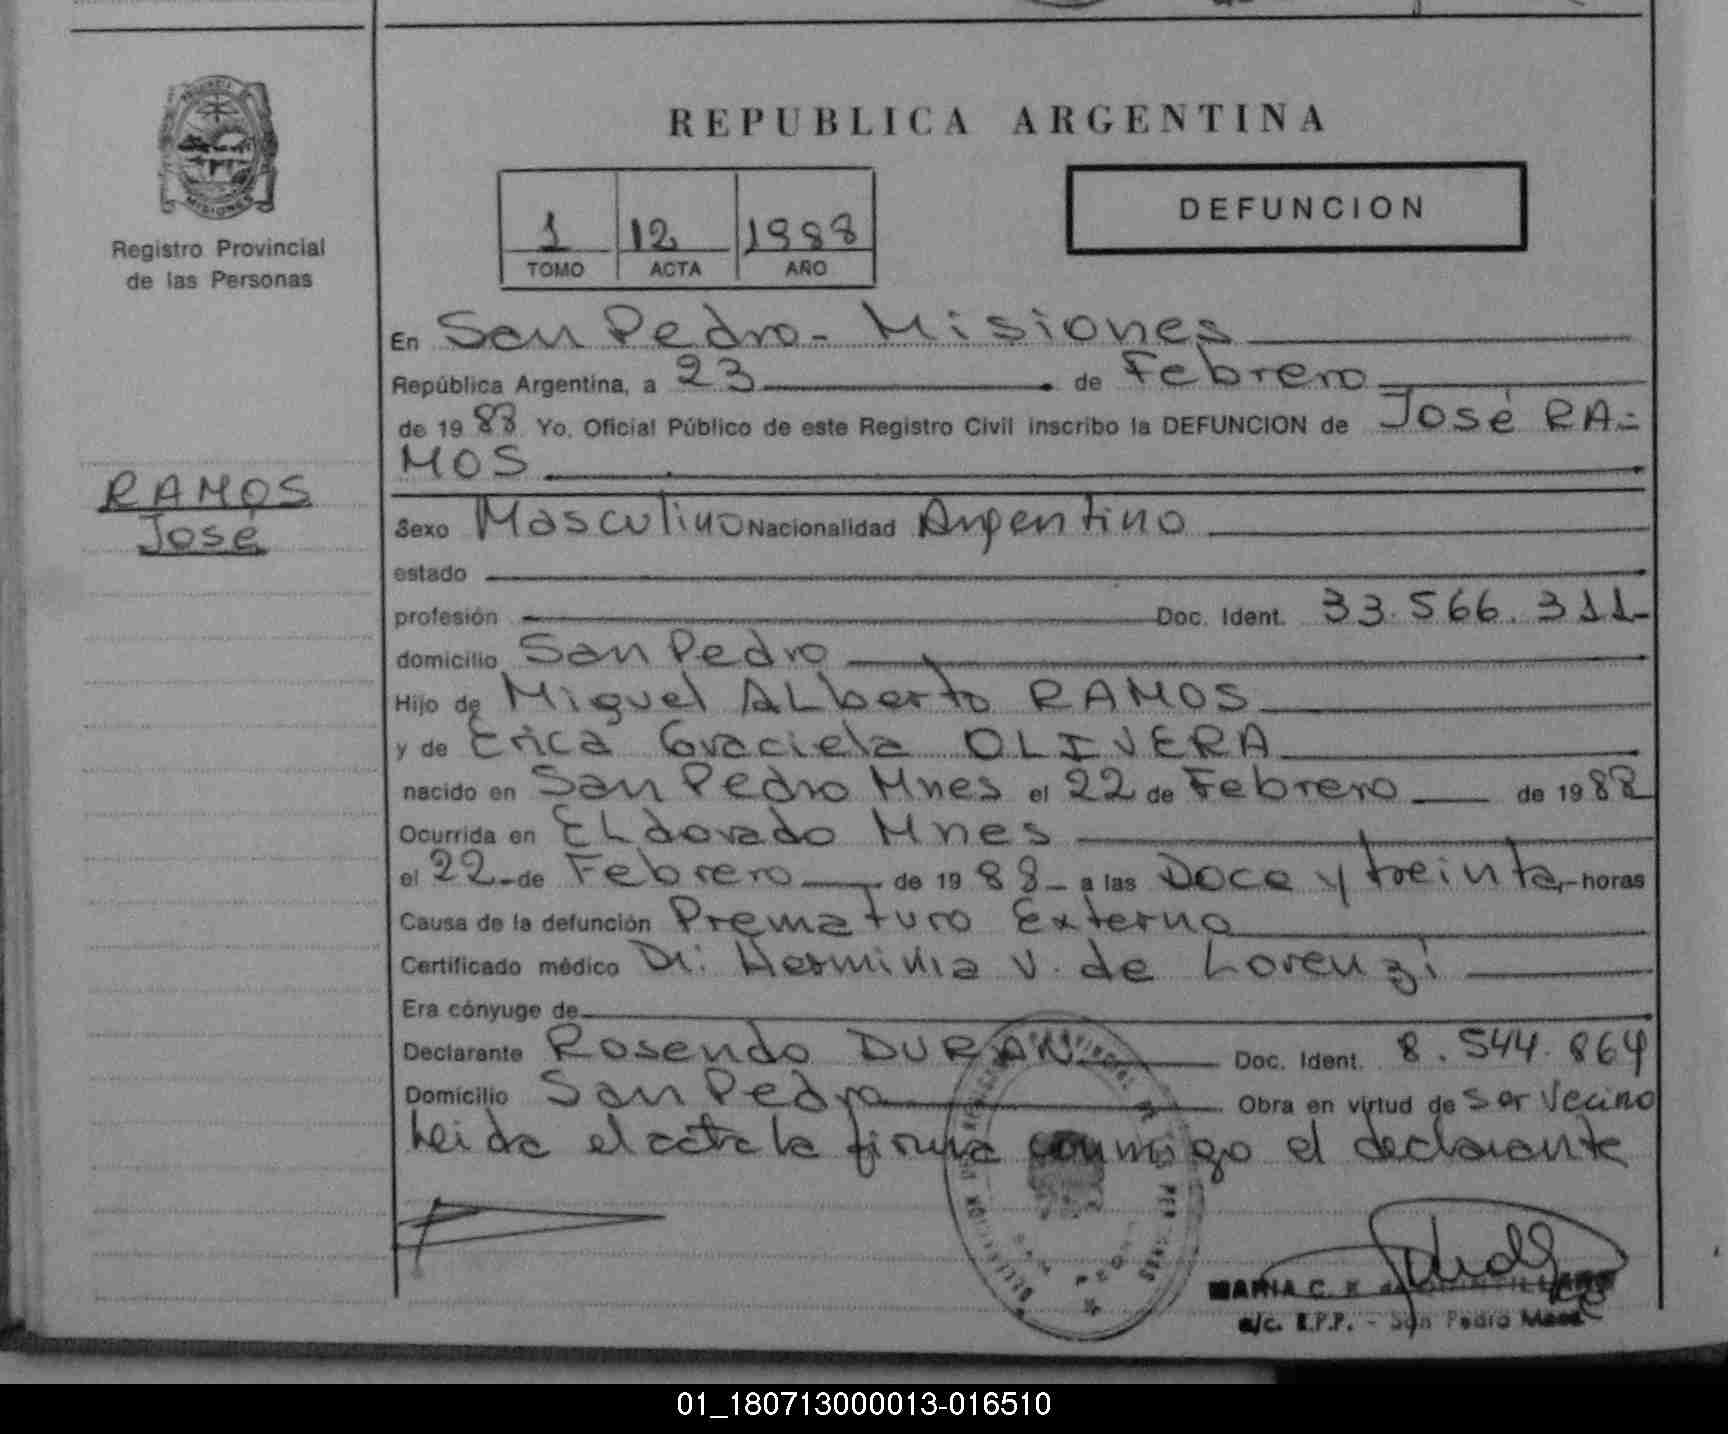 PROVINCIA DE
MISIONES
Registro Provincial
de las Personas
RAMOS
José
REPUBLICA ARGENTINA
1 12 1988
TOMO ACTA AÑO
DEFUNCION
En San Pedro - Misiones
República Argentina, a 23 de Febrero
de 1988 Yo, Oficial Público de este Registro Civil inscribo la DEFUNCION de José RA=
MOS
Sexo Masculino Nacionalidad Argentino
estado
profesión Doc. Ident. 33.566.311-
domicilio San Pedro
Hijo de Miguel ALberto RAMOS
y de Erica Graciela OLIVERA
nacido en San Pedro Mnes el 22 de Febrero de 1988
Ocurrida en ELdorado Mnes
el 22 - de Febrero de 1988 - a las Doce y treinta - horas
Causa de la defunción Prematuro Externo
Certificado médico Dr: Herminia V. de Lorenzi
Era cónyuge de
Declarante Rosendo DURAN Doc. Ident. 8.544.864
Domicilio San Pedro Obra en virtud de ser vecino
Leida el acta la firma conmigo el declarante
MARIA C. K. de
a/c. R.P.P. - San Pedro Mnes
01_180713000013-016510